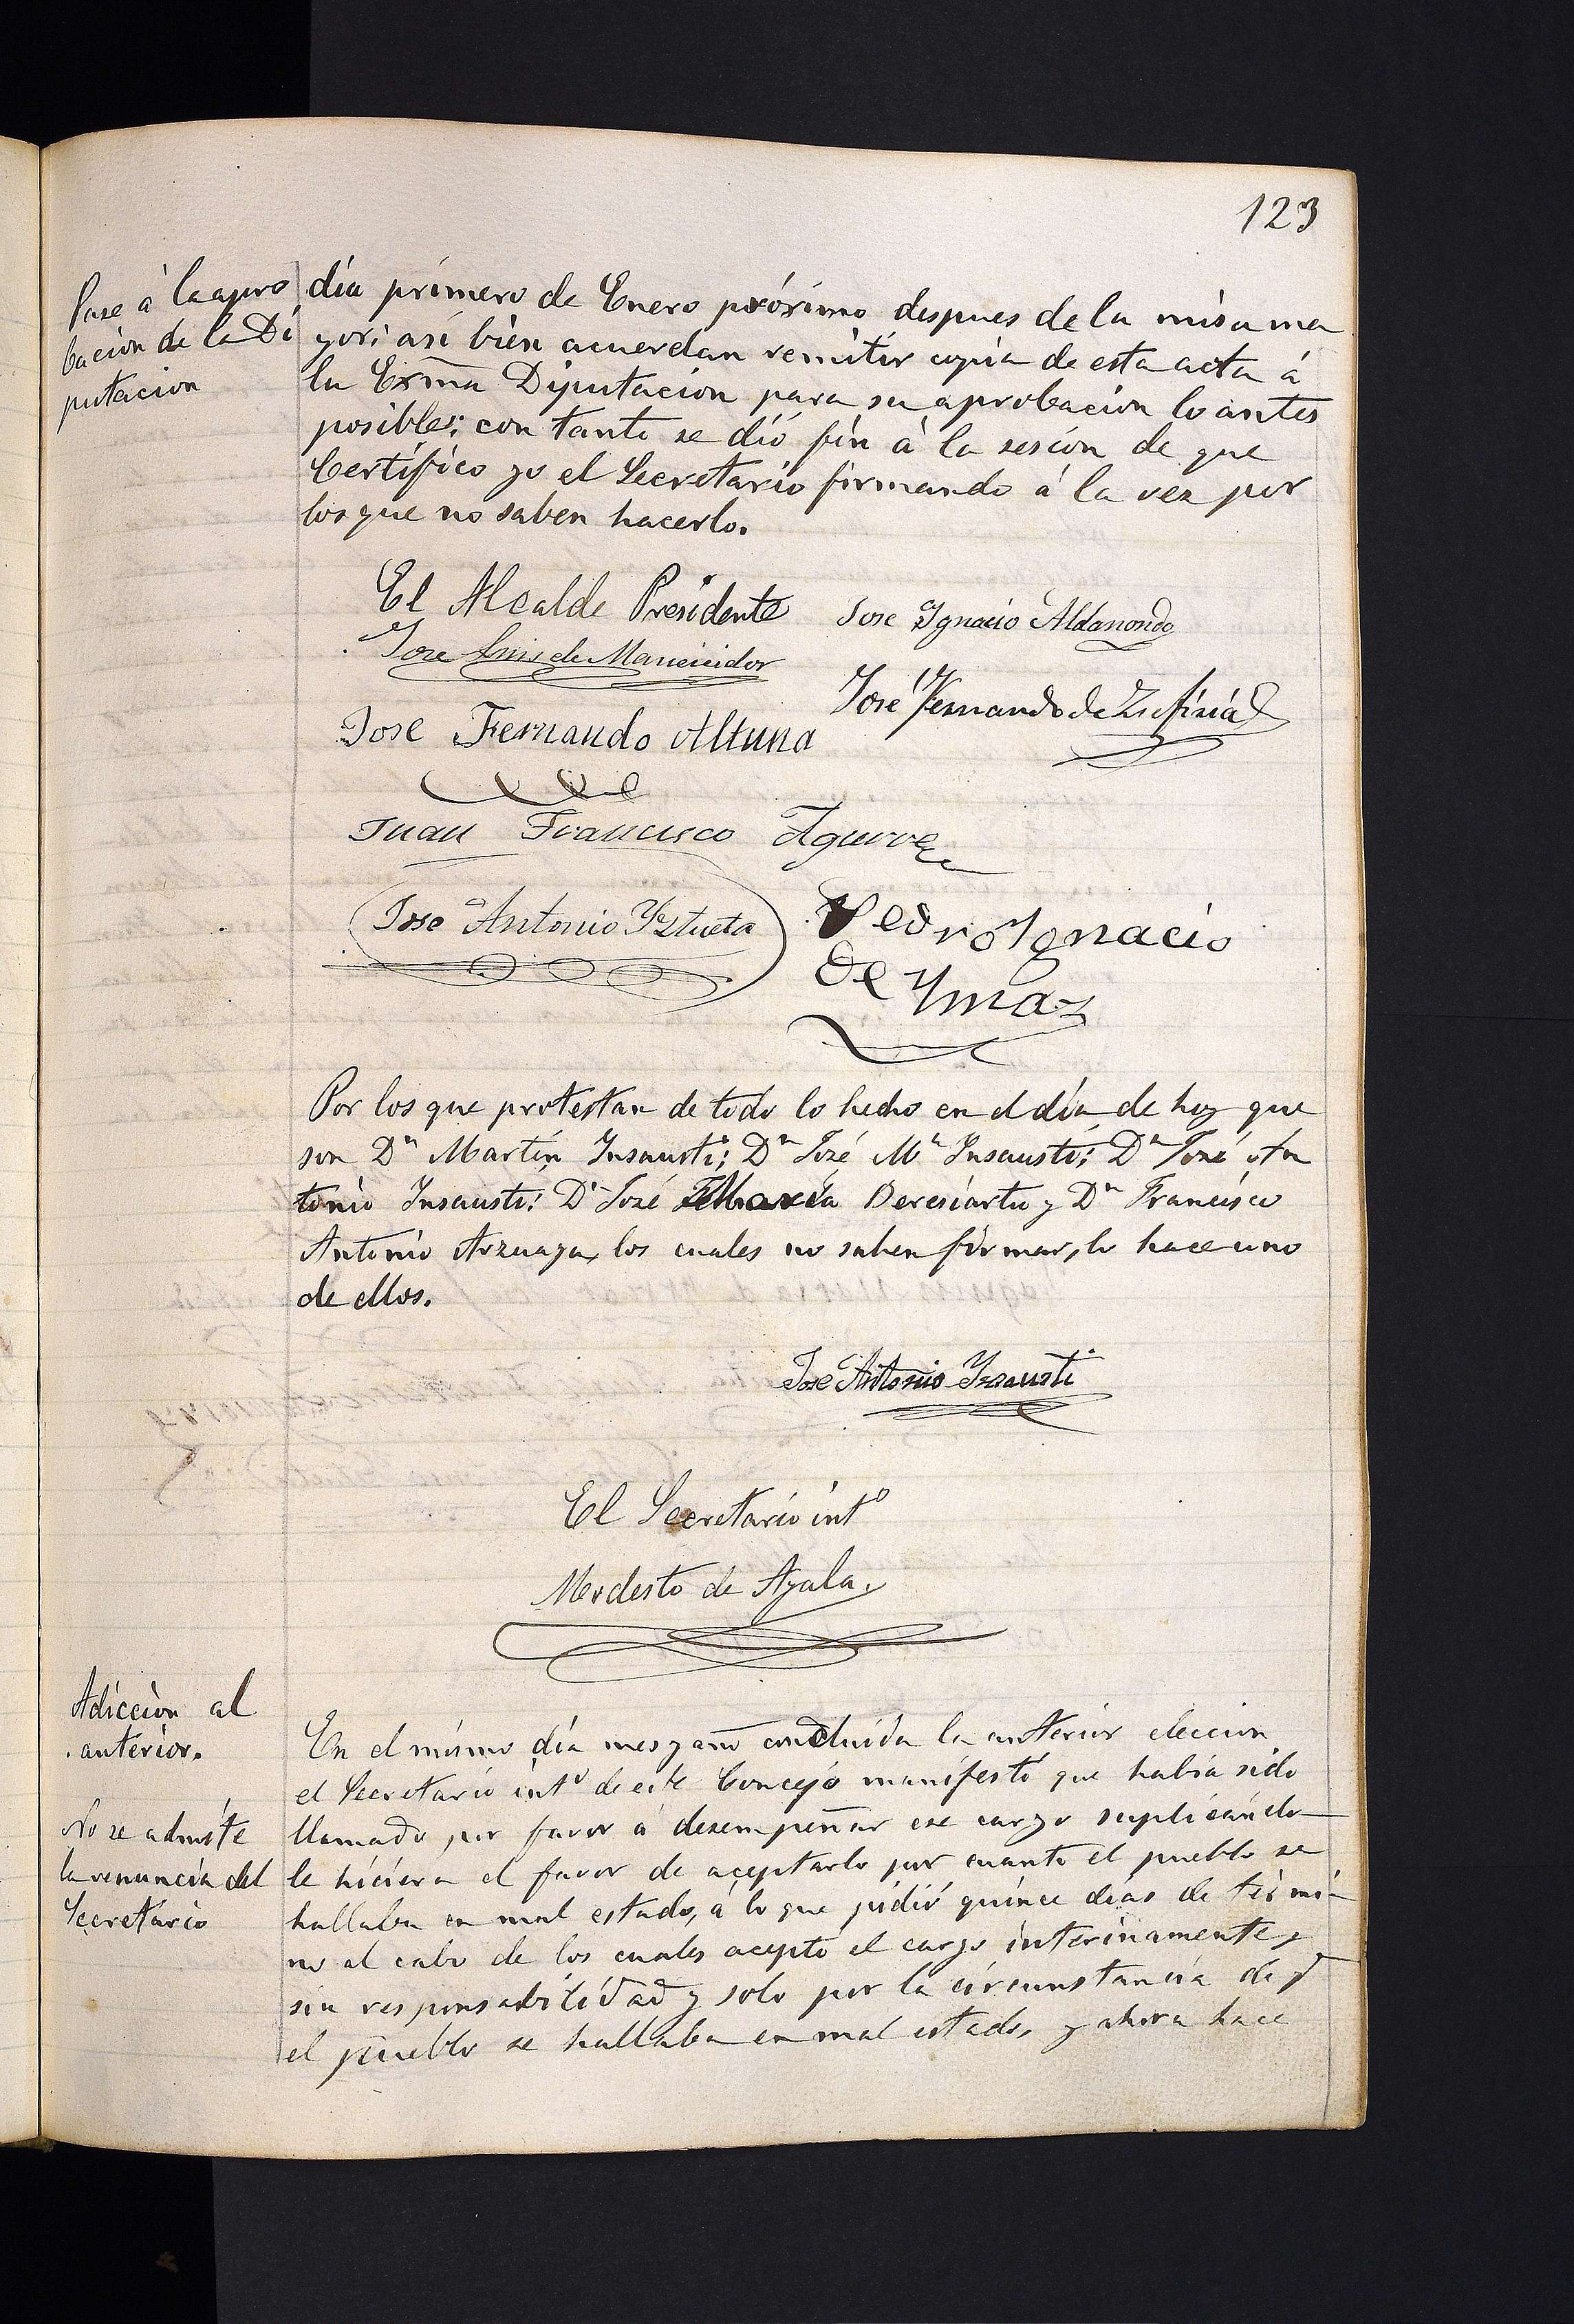 123
Pase à la apro
bacion de la Di
putacion
día primero de Enero próximo despues de la misa ma
yor; así bien acuerdan remitir copia de esta acta á
la Exm̃a Diputacion para su aprobación lo antes
posible; con tanto se dió fin à la sesión de que
Certifico yo el Secretario firmando á la vez por
los que no saben hacerlo.
El Alcalde Presidente
Jose Ignacio Aldanondo
Jose Luis de Mancicidor
José Fernando de Zufiria
Jose Fernando Altuna
Juan Francisco Aguirre
Jose Antonio Yztueta
Pedro Ygnacio
de Ymaz
Por los que protestan de todo lo hecho en el día de hoy que
son Dⁿ Martín Insausti; Dⁿ José Mª Insausti; Dⁿ José An
tonio Insausti; Dⁿ José María Bereciartu y Dⁿ Francisco
Antonio Arzuaga, los cuales no saben firmar, lo hace uno
de ellos.
Jose Antonio Ynsausti
El Secretario intº
Modesto de Ayala.
Adicción al
anterior.
En el mismo día mes y año concluida la anterior eleccion
el Secretario intº de este Concejo manifestó que había sido
llamado por favor á desempeñar ese cargo suplicándo
le hiciera el favor de aceptarlo por cuanto el pueblo se
hallaba en mal estado, á lo que pidió quince días de térmi
no al cabo de los cuales aceptó el cargo interinamente y
sin responsabilidad y solo por la circunstancia de q
el pueblo se hallaba en mal estado, y ahora hace
No se admite
la renuncia del
Secretario